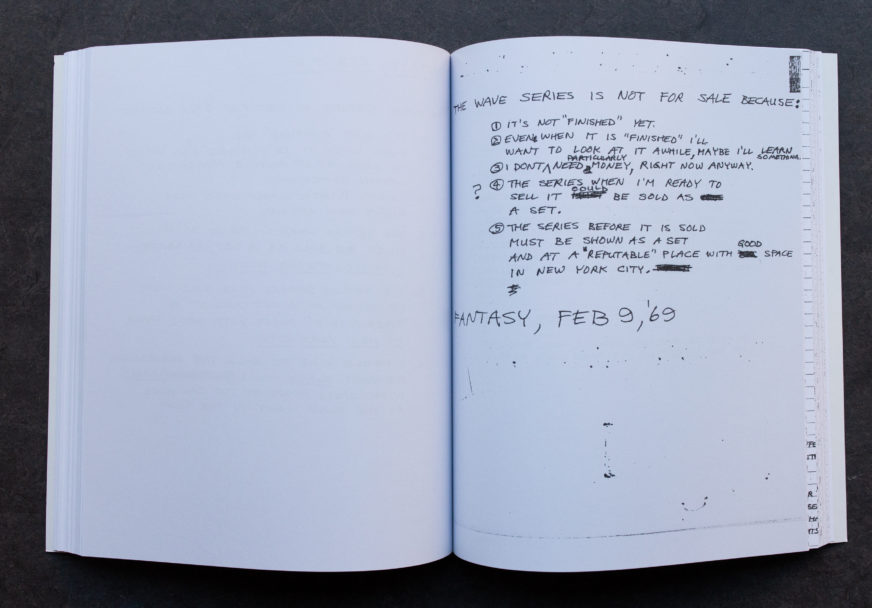 THE WAVE SERIES IS NOT FOR SALE BECAUSE:
① IT'S NOT "FINISHED" YET.
② EVEN WHEN IT IS "FINISHED" I'LL
WANT TO LOOK AT IT AWHILE, MAYBE I'LL LEARN
SOMETHING.
PARTICULARLY
③ I DONT NEED MONEY, RIGHT NOW ANYWAY.
? ④ THE SERIES WHEN I'M READY TO
COULD
SELL IT BE SOLD AS
A SET.
⑤ THE SERIES BEFORE IT IS SOLD
MUST BE SHOWN AS A SET
GOOD
AND AT A "REPUTABLE" PLACE WITH SPACE
IN NEW YORK CITY.
FANTASY, FEB 9, '69